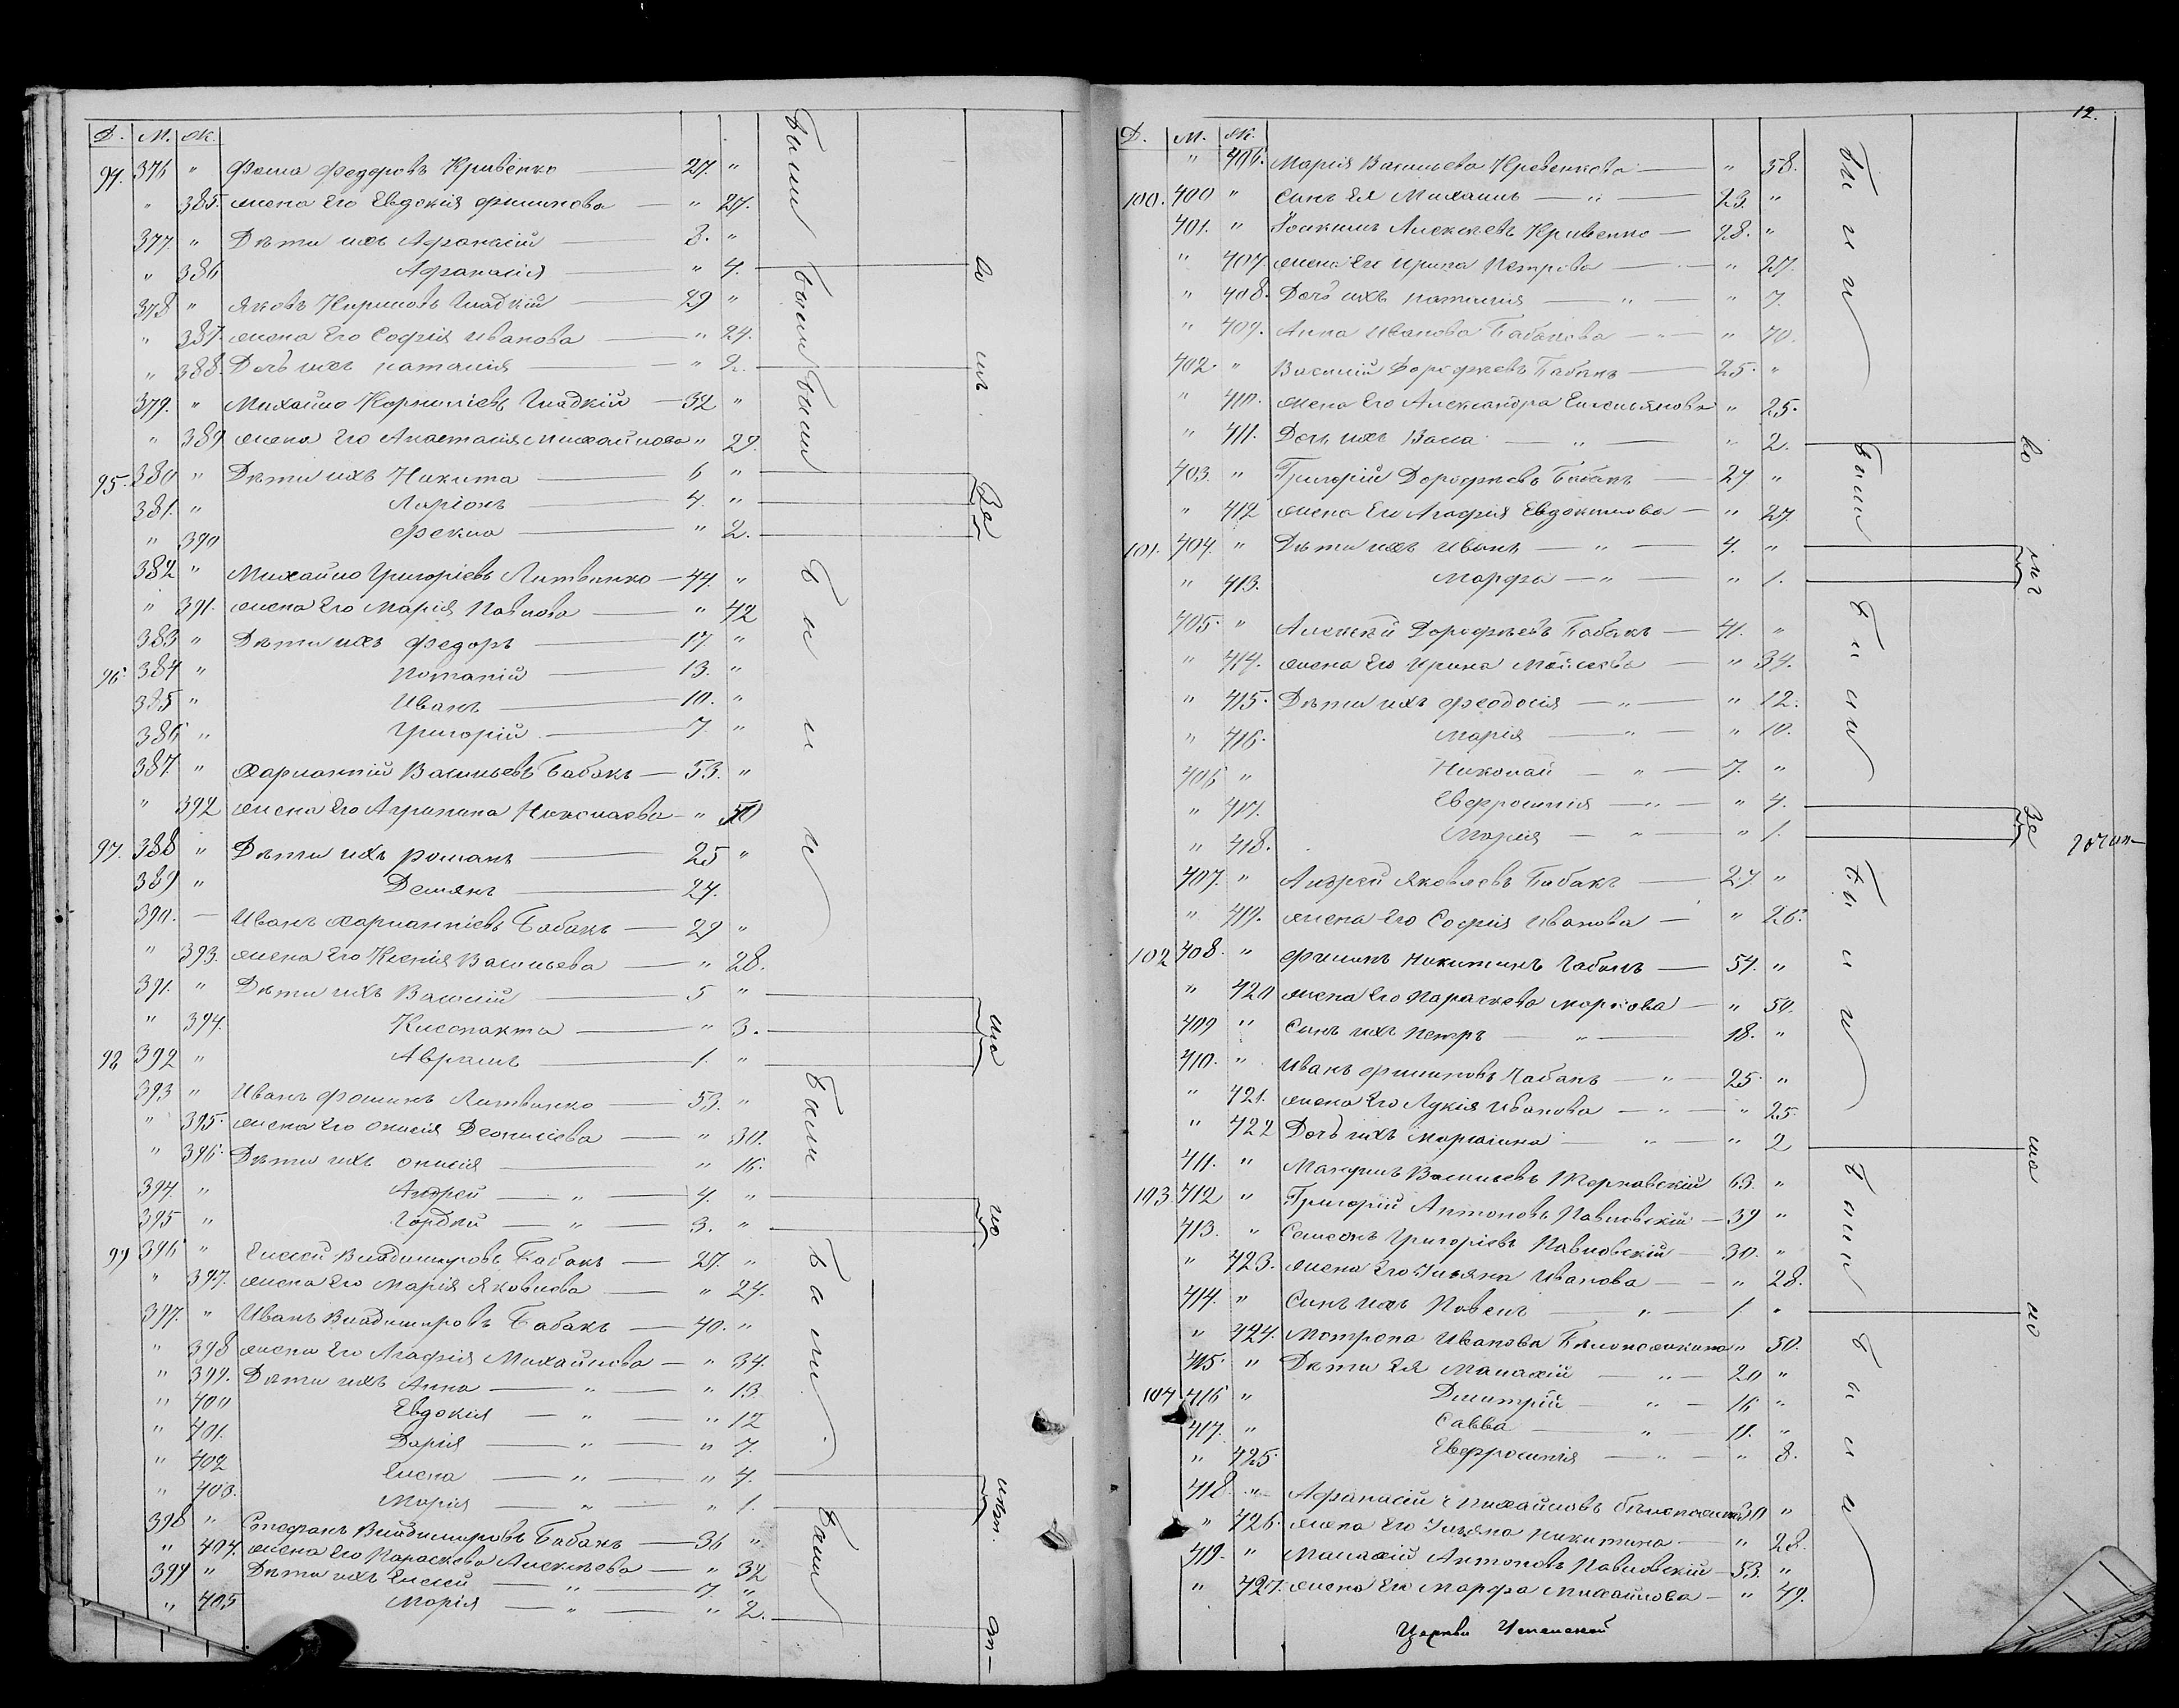 Д. М. Ж.
94. 376 " Фома Федоровъ Кривенко — 27. "
" 385. жена Его Евдокія Филипова — " 27.
377 " Дѣти ихъ Афанасій — 3. "
" 386 Афанасія — " 4.
378 " Яковъ Кириловъ Гладкій — 29 "
" 387. жена Его Софія Иванова — " 24.
" 388. Дочь ихъ Наталія — " 2.
379. " Михайло Корниліевъ Гладкій — 32 "
" 389 жена Его Анастасія Михайлова " 29.
95. 380 " Дѣти ихъ Никита — 6 "
381. " Ларіонъ — 4. "
" 390 Фекла — " 2.
382 " Михайло Григоріевъ Литвинко — 44. "
" 391. жена Его Марія Павлова — " 42
383 " Дѣти ихъ Федоръ — 17. "
96. 384 " Потапій — 13. "
385 " Иванъ — 10. "
386 " Григорій — 7. "
387. " Харлампій Васильевъ Бабакъ — 53. "
" 392 жена Его Агрипина Николаева — " 50
97. 388 " Дѣти ихъ Романъ — 25 "
389 " Демянъ — 24.
390. — Иванъ Харлампіевъ Бабакъ — 29 "
" 393. жена Его Ксенія Васильева — " 28.
391. " Дѣти ихъ Василій — 5 "
" 394. — " 3.
98 392 " Аврамъ — 1. "
393 " Иванъ Фоминъ Литвинко — 53. "
" 395. жена Его Онисія Деонисіева — " 30.
" 396. Дѣти ихъ Онисія — " 16.
394. " Андрей — " — 4. "
395 " Гордѣй — " — 3. "
99 396 " Елисей Владимировъ Бабакъ — 27. "
" 397. жена Его Марія Яковлева — " 24.
397. " Иванъ Владимировъ Бабакъ — 40. "
" 398 жена Его Агафія Михайлова — " 34.
" 399. Дѣти ихъ Анна — " — " 13
" 400 Евдокія — " — " 12
" 401. Дарія — " — " 7.
" 402 Елена — " — " 4.
" 403. Марія — " — " 1.
398 " Стефанъ Владимировъ Бабакъ — 36 "
" 404. жена Его Параскева Алексѣева — " 32
399 " Дѣти ихъ Елисей — " — 7. "
" 405 Марія — " — " 2.
были
были
были
были
были
были
были
12.
Д. М. Ж.
" 406. Марія Васильева Кривенкова — " 58.
100. 400 " Сынъ Ея Михаилъ — " — 23. "
401. " Іоакимъ Алексѣевъ Кривенко — 28. "
" 407 жена Его Ирина Петрова — " 27.
" 408. Дочь ихъ Наталия — " — " 7.
" 409. Анна Иванова Бабакова — " — " 70.
402. " Василій Дорофѣевъ Бабакъ — 25. "
" 410. жена Его Александра Емельянова " 25.
" 411. Дочь ихъ — " — " 2.
403. " Григорій Дорофѣевъ Бабакъ — 27 "
" 412 жена Его Агафія Евдокимова — " 27.
101. 404. " Дѣти ихъ Иванъ — " — 4. "
" 413. Марфа — " — " 1.
405. " Алексѣй Дорофѣевъ Бабакъ — 41. "
" 414. жена Его Ирина Моисеева — " 34.
" 415. Дѣти ихъ Феодосія — " — " 12.
" 416. Марія — " — " 10.
406 " Николай — " — 7. "
" 417. Евфросинія — " — " 4.
" 418. Марія — " — " 1.
407. " Андрей Яковлевъ Бабакъ — 27 "
" 419. жена Его Софія Иванова — " 26.
102 408. " Филипъ Никитинъ Чабанъ — 54. "
" 420 жена Его Параскева Маркова — " 50.
409 " Сынъ ихъ Петръ — " — 18. "
410. " Иванъ Филиповъ Чабанъ — " — 25. "
" 421. жена Его Лукія Иванова — " — " 25.
" 422 Дочь ихъ — " — " 2
411. " Васильевъ Терновскій 63. "
103. 412 " Григорій Антоновъ Павловскій — 39 "
413. " Семеонъ Григоріевъ Павловскій — 30. "
" 423. жена Его Ульяна Иванова — " 28.
414. " Сынъ ихъ Павелъ — " — 1. "
" 424. Мотрона Иванова " 50.
415. " Дѣти Ея Малахій — " — 20 "
104 416 " Дмитрій — " — 16 "
417. " Савва — " — 11. "
" 425. Евфросинія — " — " 8.
418. " Афанасій Михайловъ 30 "
" 426. жена Его Ульяна Никитина — " 28.
419. " Малахій Антоновъ Павловскій — 53. "
" 427. жена Его Марфа Михайлова — " 49.
были
были
были
были
были
были
Церкви Успенской